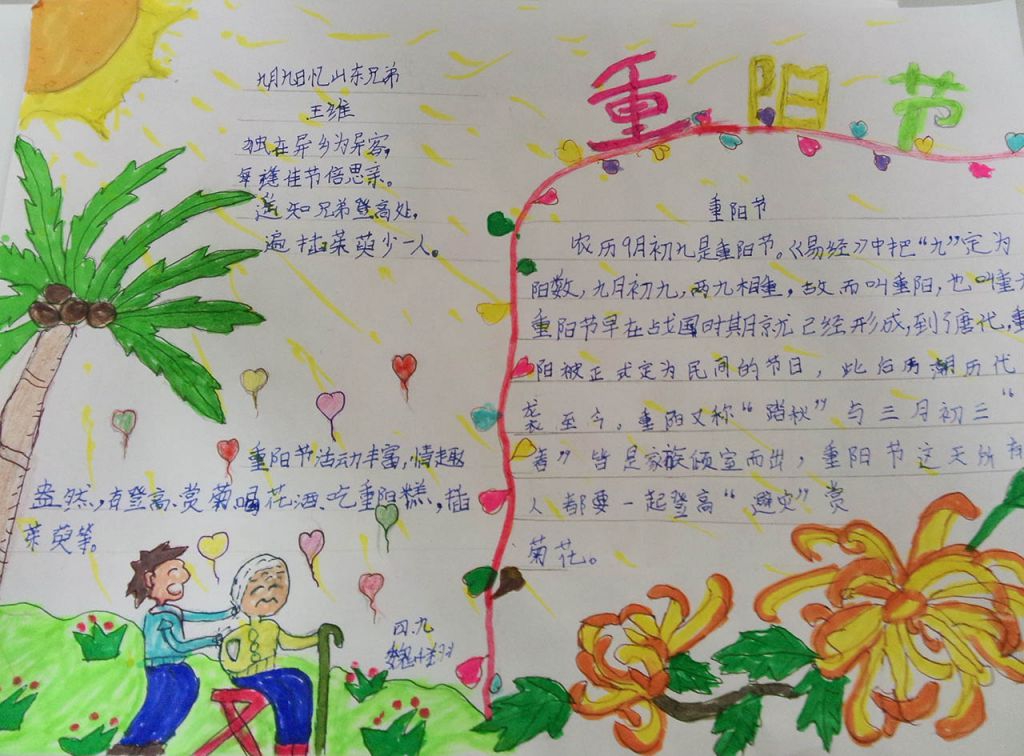 重阳节
九月九日忆山东兄弟
王维
独在异乡为异客,
每逢佳节倍思亲。
遥知兄弟登高处,
遍插茱萸少一人。
重阳节
农历9月初九是重阳节。《易经》中把“九”定为
阳数,九月初九,两九相重,故而叫重阳,也叫重
重阳节早在战国时期就已经形成,到了唐代,重
阳被正式定为民间的节日,此后历朝历代
袭至今。重阳又称“踏秋”与三月初三“
春”皆是家族倾室而出,重阳节这天所有
人都要一起登高“避灾”赏
菊花。
重阳节活动丰富,情趣
盎然,有登高、赏菊、喝花酒、吃重阳糕,插
茱萸等。
四.九